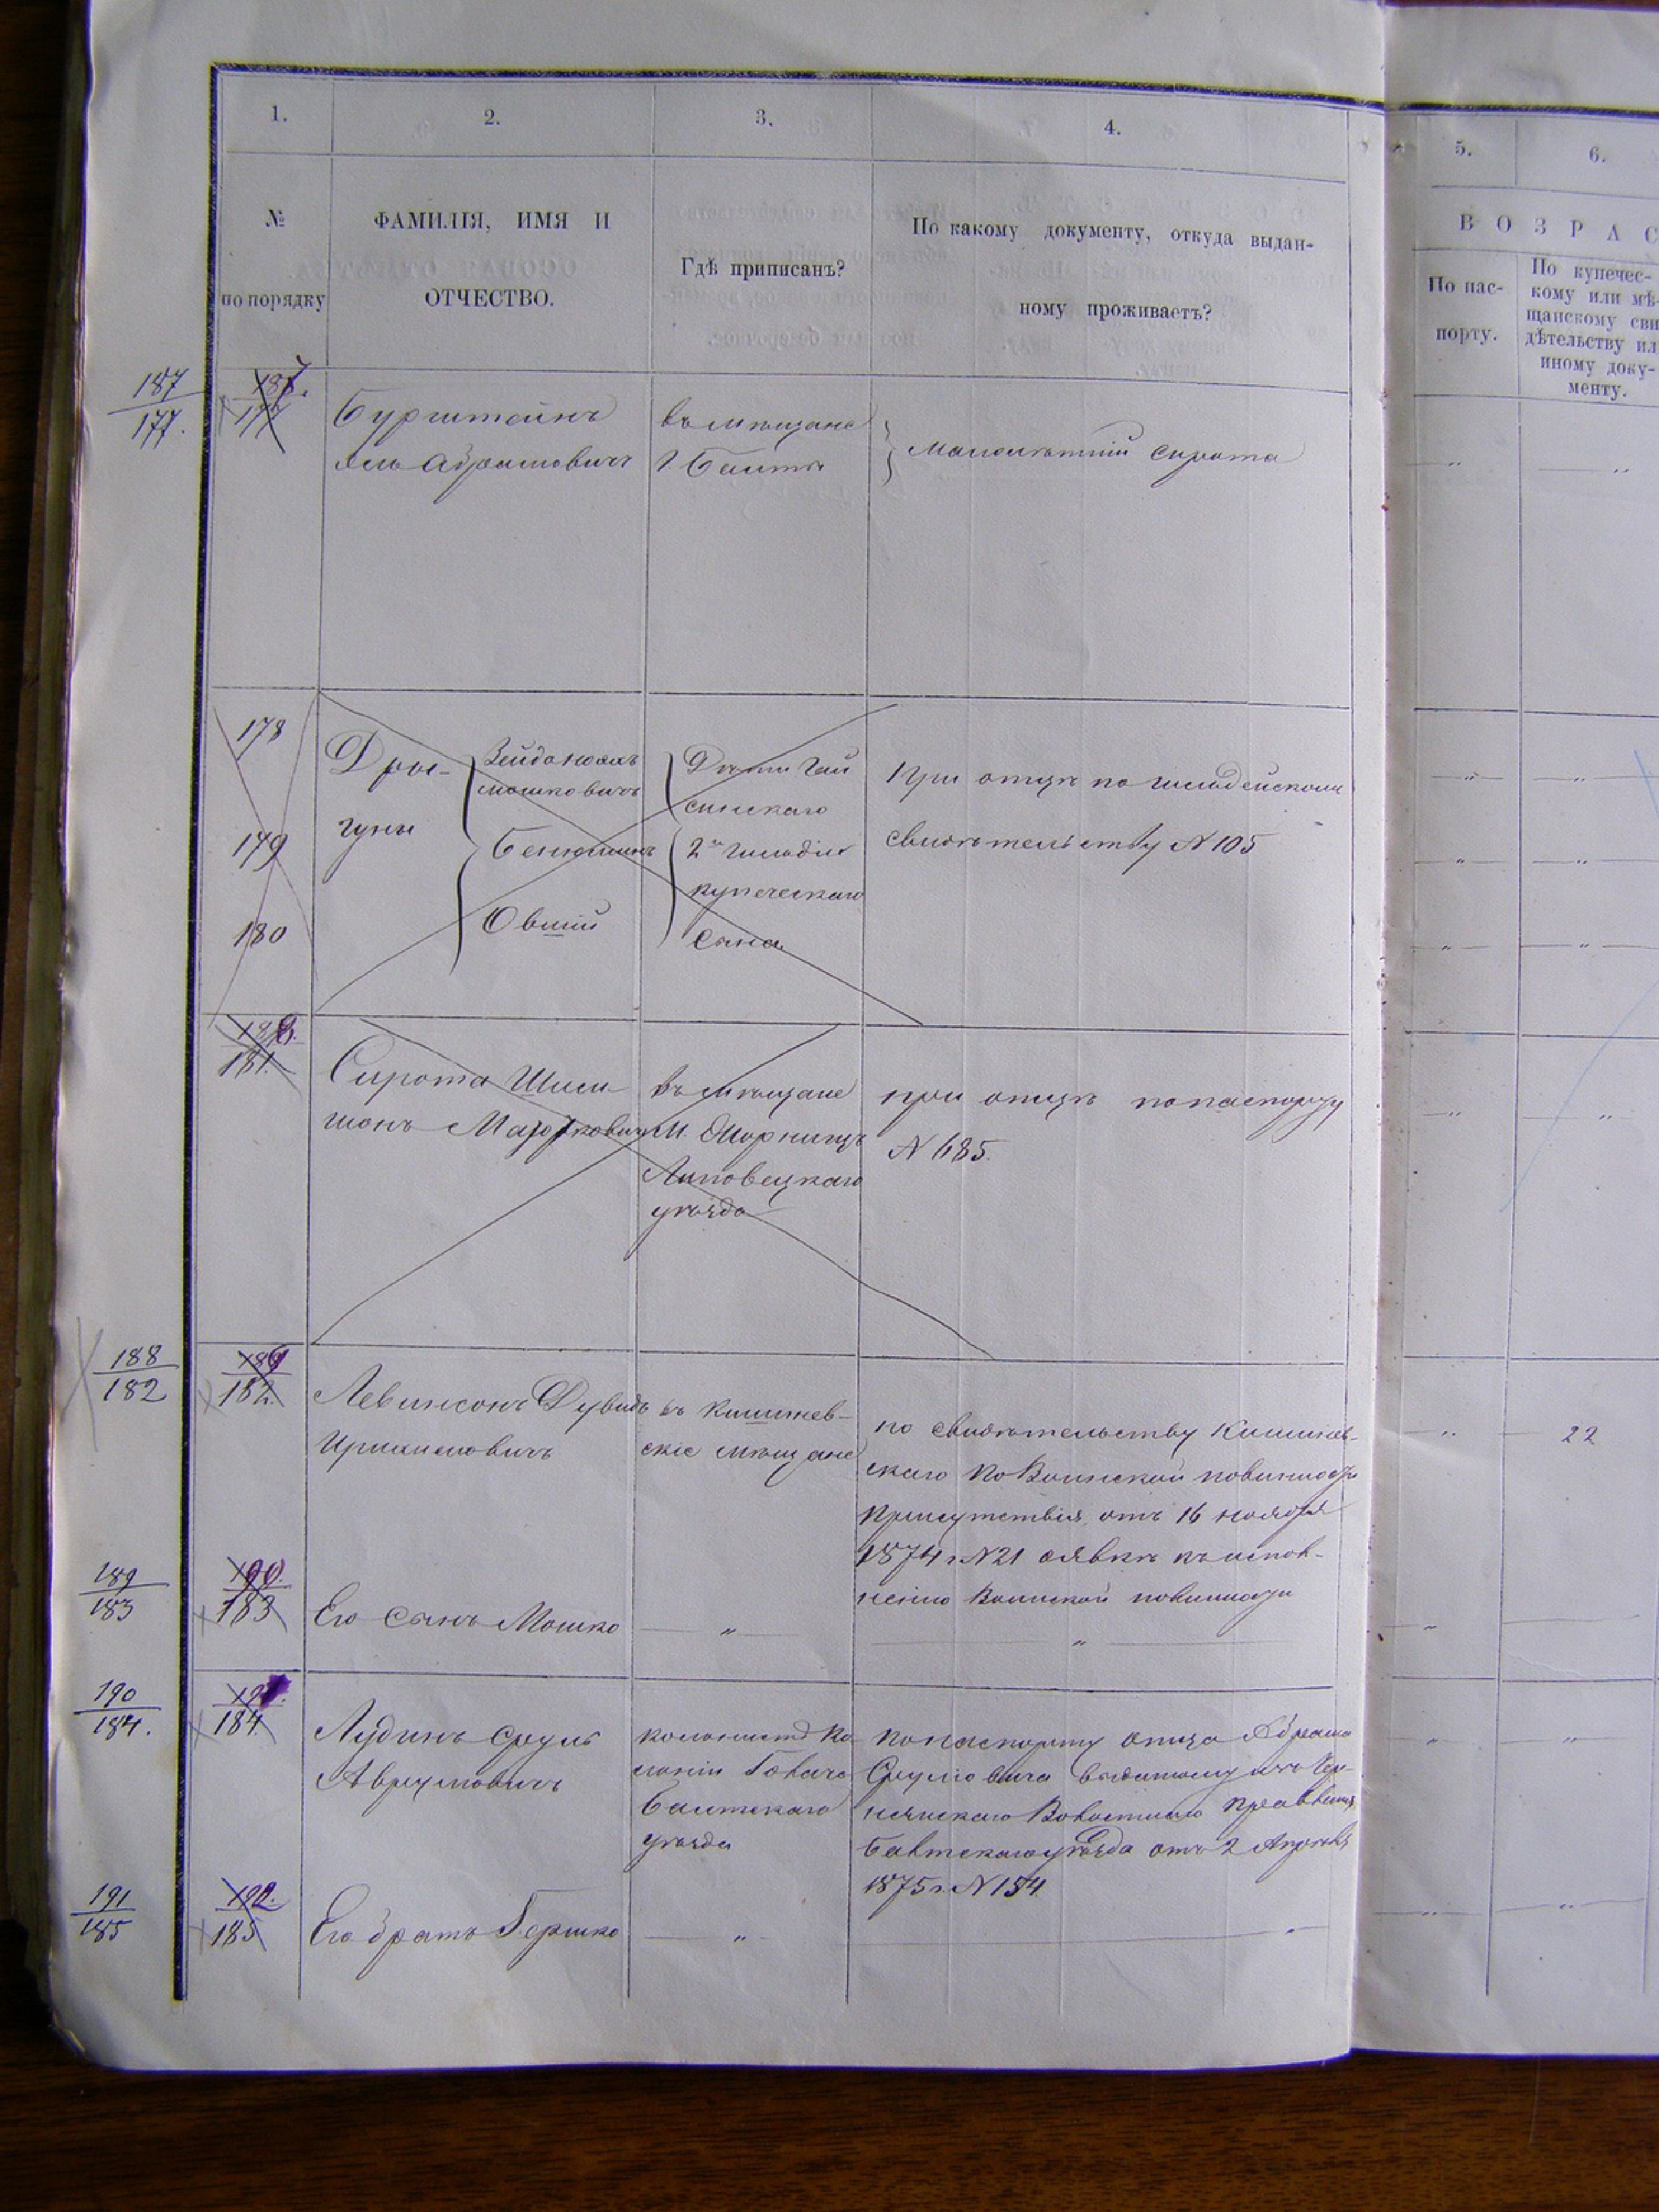 1.
2.
3.
4.
5.
6.
№
по порядку
ФАМИЛІЯ, ИМЯ И
ОТЧЕСТВО.
Гдѣ приписанъ?
По какому документу, откуда выдан-
ному проживаетъ?
ВОЗРАС
По пас-
порту.
По купечес-
кому или мѣ-
щанскому сви
дѣтельству ил
иному доку-
менту.
187
177.
177
Бурштейнъ
Абрамовичъ
въ мѣщане
г Балты
Малолѣтній сирота
178
179
180
Дры-
гуны
Мошковичъ
Бенюминъ
Овший
Дѣти Гай
синскаго
2й гильдіи
купеческаго
сына
При отцѣ по гильдейскому
свидѣтельству № 105
181.
Сирота Шли
монъ
въ мѣщане
м.
Липовецкаго
уѣзда
при отцѣ по паспорту
№ 685.
188
182
189
182.
Левинсонъ Дувидъ
въ Кишинев-
скіе мѣщане
по свидѣтельству Кишинев-
скаго по Воинской повинности
присутствія отъ 16 ноября
1874 г. № 21 о явкѣ къ испол-
ненію Воинской повинности
22
189
183
190.
183
Его сынъ Мошко
"
"
190
184.
184.
Лудинъ Сруль
Аврумовичъ
колонистъ Ко
лоніи
Балтскаго
уѣзда
По паспорту отца Абрама
Сруліовича выданному изъ
Волостнаго Правленія
Балтскаго уѣзда отъ 2 Апрѣля
1875 г. № 154
191
185
192.
185
Его братъ Гершко
"
"